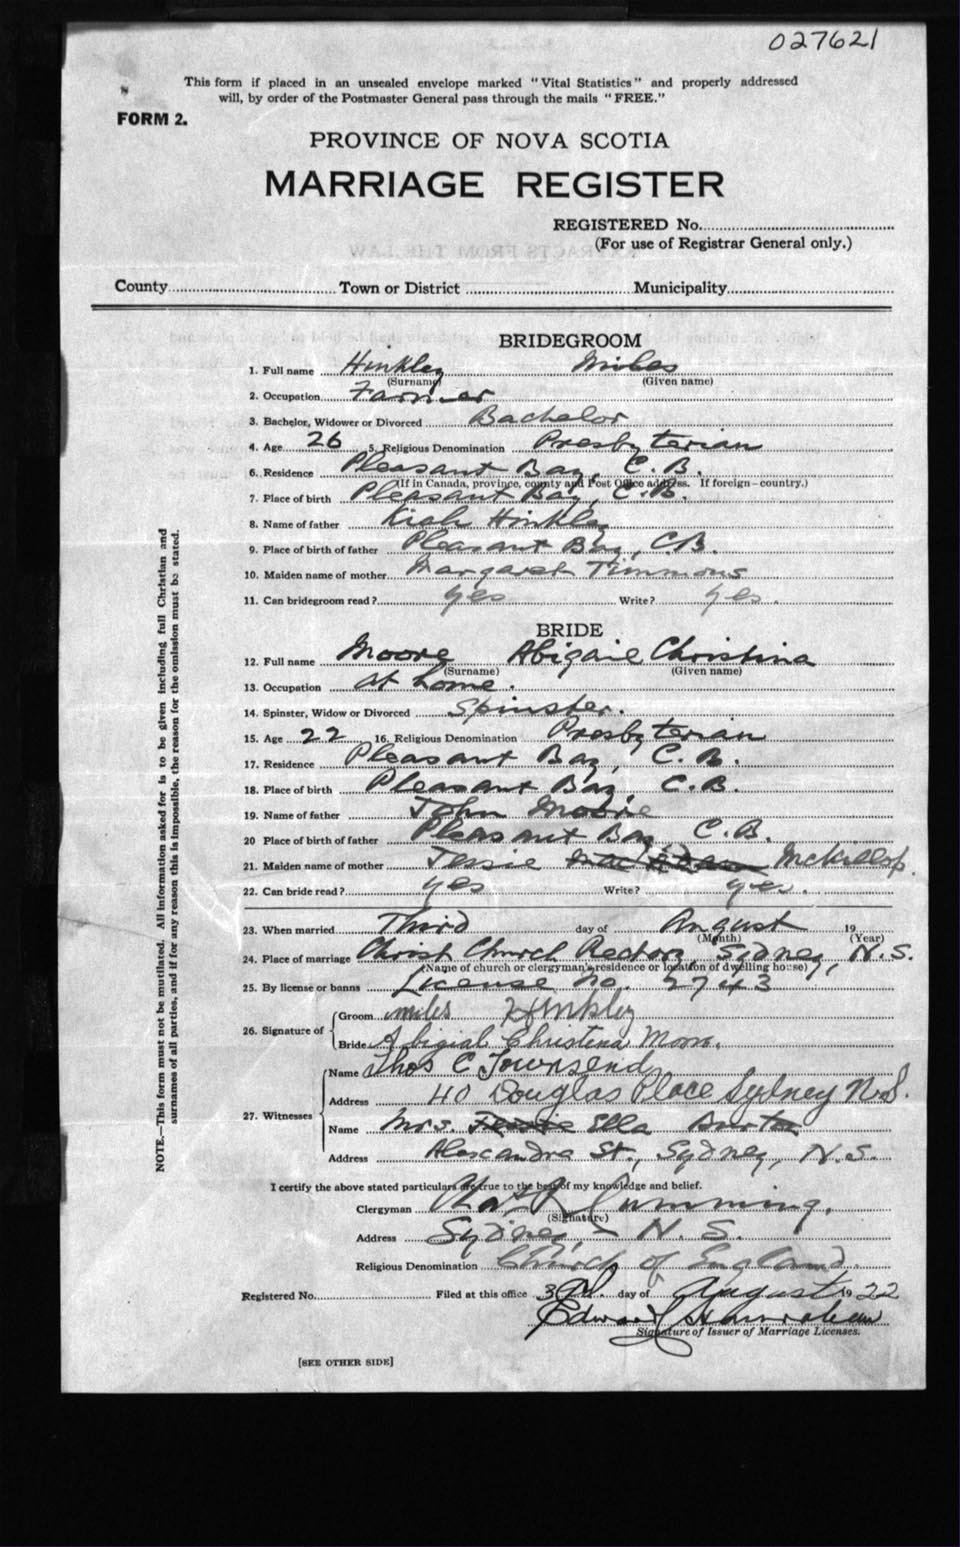 027621
This form if placed in an unsealed envelope marked "Vital Statistics" and properly addressed
will, by order of the Postmaster General pass through the mails "FREE."
FORM 2.
PROVINCE OF NOVA SCOTIA
MARRIAGE REGISTER
REGISTERED No.
(For use of Registrar General only.)
County Town or District Municipality
BRIDEGROOM
1. Full name Hinkley Miles
(Surname) (Given name)
2. Occupation Farmer
3. Bachelor, Widower or Divorced Bachelor
4. Age 26 5. Religious Denomination Presbyterian
6. Residence Pleasant Bay, C.B.
(If in Canada, province, county and Post Office address. If foreign—country.)
7. Place of birth Pleasant Bay, C.B.
8. Name of father Kiah Hinkley
9. Place of birth of father Pleasant Bay, C.B.
10. Maiden name of mother Margaret Timmons
11. Can bridegroom read? yes Write? yes.
BRIDE
12. Full name Moore Abigail Christina
(Surname) (Given name)
13. Occupation at home.
14. Spinster, Widow or Divorced Spinster.
15. Age 22 16. Religious Denomination Presbyterian
17. Residence Pleasant Bay, C.B.
18. Place of birth Pleasant Bay, C.B.
19. Name of father John Moore
20 Place of birth of father Pleasant Bay, C.B.
21. Maiden name of mother Jessie McKillop.
22. Can bride read? yes Write? yes.
23. When married Third day of August 19
(Month) (Year)
24. Place of marriage Christ Church Rectory, Sydney, N.S.
(Name of church or clergyman's residence or location of dwelling house)
25. By license or banns License No. 2743
26. Signature of Groom miles Hinkley
Bride Abigial Christena Moore.
27. Witnesses
Name Thos C Townsend
Address 40 Douglas Place Sydney N.S.
Name Mrs. Ella
Address Alexandra St., Sydney, N.S.
I certify the above stated particulars are true to the best of my knowledge and belief.
Clergyman Cumming.
(Signature)
Address Sydney, N.S.
Religious Denomination Church of England
Registered No. Filed at this office 3rd. day of August 1922
Edward
Signature of Issuer of Marriage Licenses.
[SEE OTHER SIDE]
NOTE.—This form must not be mutilated. All information asked for is to be given including full Christian and
surnames of all parties, and if for any reason this is impossible, the reason for the omission must be stated.